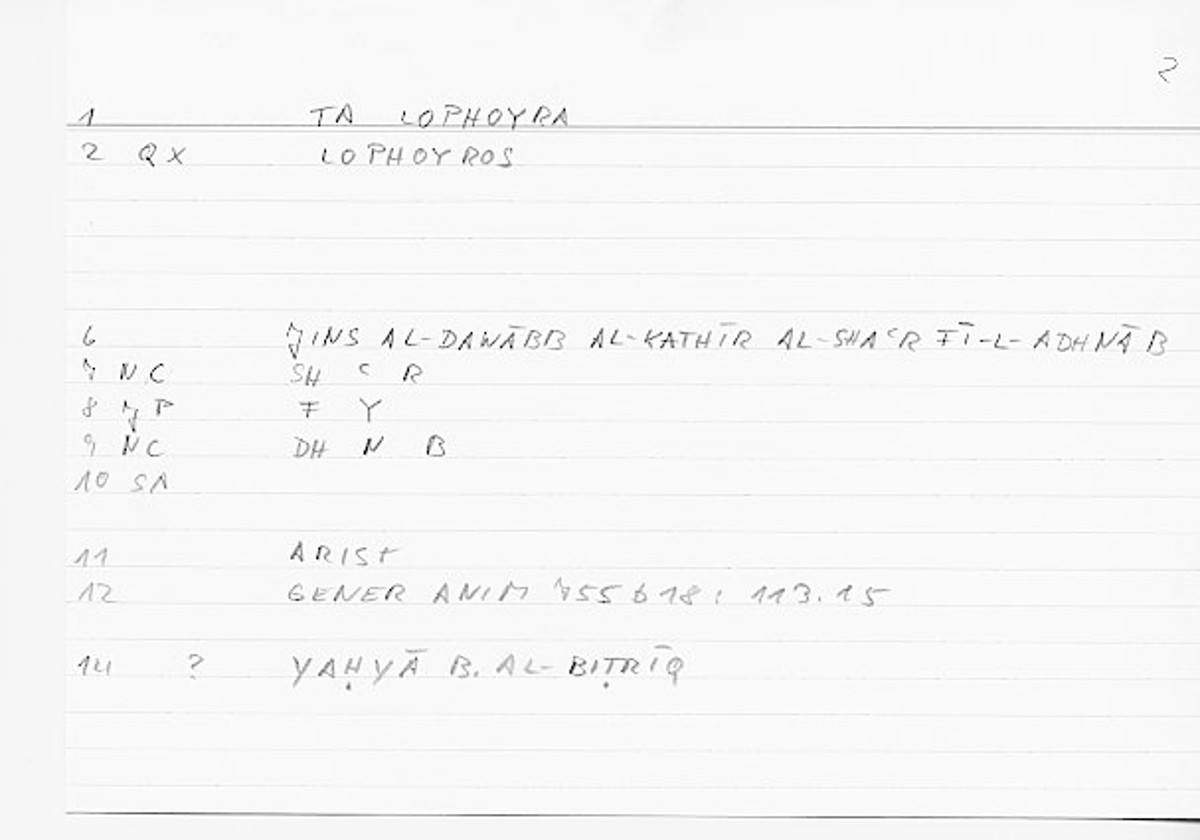 2
1 TA LOPHOYRA
2 QX LOPHOYROS
6 JINS AL-DAWĀBB AL-KATHĪR AL-SHAʿR FĪ-L-ADHNĀB
7 NC SH ʿ R
8 JP F Y
9 NC DH N B
10 SA
11 ARIST
12 GENER ANIM 755b18; 113.15
14 ? YAḤYĀ B. AL-BIṬRĪQ